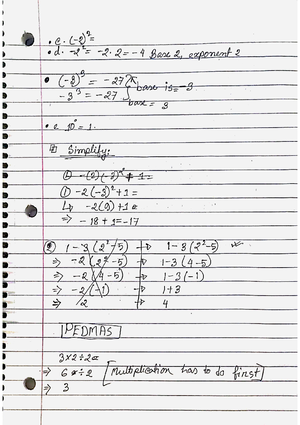 • c. (-2)²=
• d. -2² = -2·2 = -4 Base 2, exponent 2
• (-3)³ = -27 base is = -3
-3³ = -27 base = 3
• e. 10⁰ = 1.
Simplify:
① -2(-3)²+1=
↳ -2(9)+1=
⇒ -18+1=-17
② 1-3(2²-5) → 1-3(2²-5)
⇒ -2(2²-5) → 1-3(4-5)
⇒ -2(4-5) → 1-3(-1)
⇒ -2(-1) → 1+3
⇒ 2 → 4
PEDMAS
3×2÷2=
⇒ 6÷2 [Multiplication has to do first]
⇒ 3